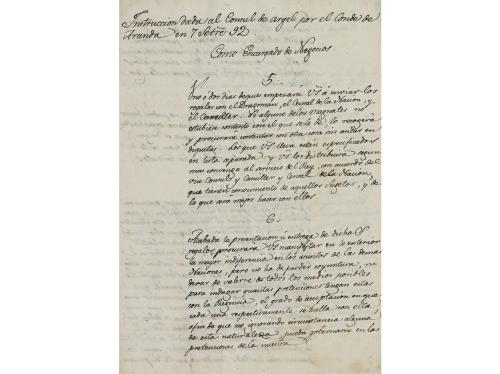 Instruccion dada al Consul de argel por el Conde de
Aranda en 7 Setbre 92
Como Encargado de Negocios
5.
Uno o dos dias despues empezará VS á enviar los
regalos con el Dragomán, el Censal de la Nacion, y
el Canciller. Si alguno de los magnates no
estubiere contento con el que se le dé, lo recogerá
y procurará contentar con otra cosa sin andar en
disputas. Los que VS lleva están especificados
en lista aparada, y VS los distribuirá segun
mas convenga al servicio del Rey, con acuerdo del
vice Consul y Canciller y Censal de la Nacion,
que tienen conocimiento de aquellos sugetos, y de
lo que será mejor hacer con ellos.
6.
Acabada la presentacion ú entrega de dichos
regalos procurará VS manifestar en lo exterior
la mayor indiferencia en los asuntos de las demas
Naciones, pero no ha de perder coyuntura, ni
dexar de valerse de todos los medios posibles
para indagar quantas pretensiones tengan ellas
con la Regencia, el grado de aceptacion en que
cada una respectivamente se halla con ella
afin de que no ignorando circunstancia alguna
de esta naturaleza, pueda gobernarse en las
pretensiones de la nuestra.